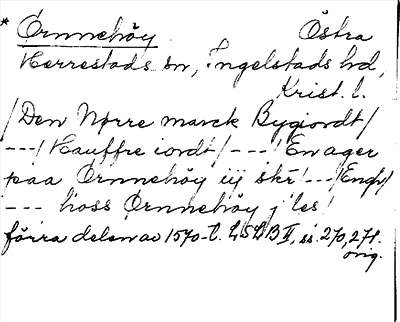 * Ørnnehöy Östra
Herrestads sn, Ingelstads hd,
Krist. l.
/Den Nørre marck Bygiordt/
---/Hauffre iordt/---/En ager
paa Ørnnehöy iij skr/---/End/
--- hoss Ørnnehöy j les/
förra delen av 1570-t. LSLB II, ss. 270, 271.
orig.